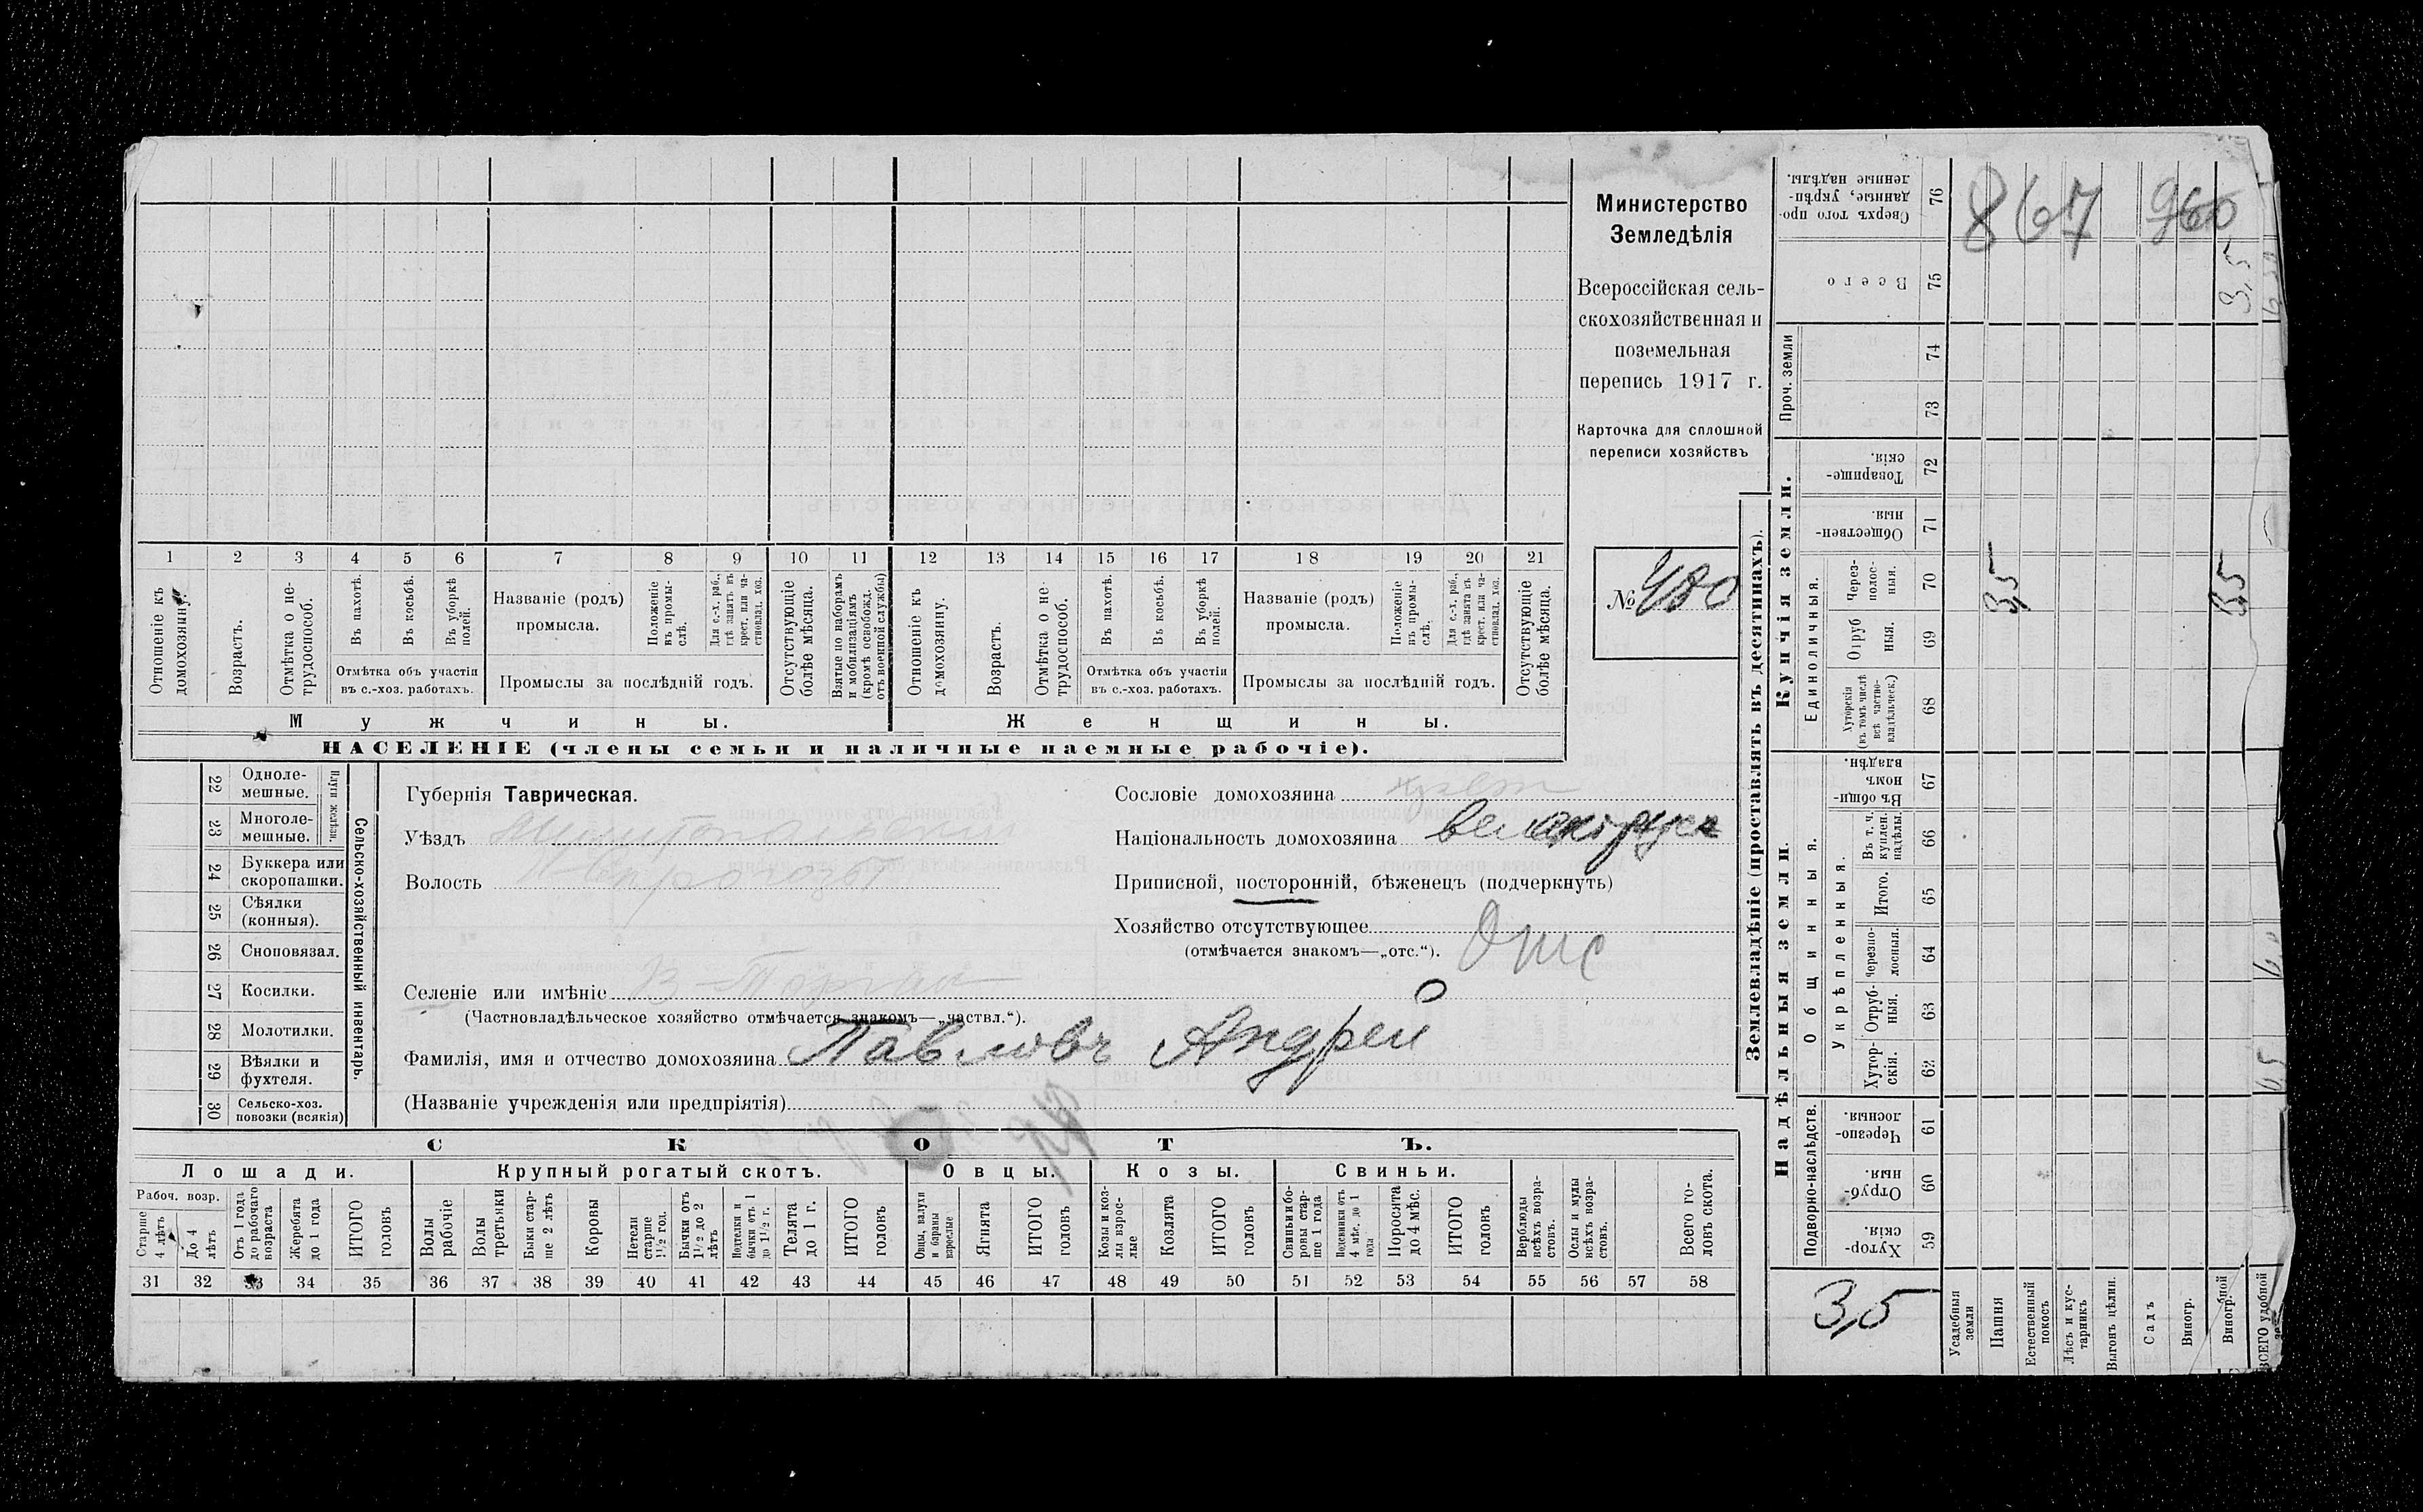 Министерство
Земледѣлія
Всероссійская сель-
скохозяйственная и
поземельная
перепись 1917 г.
Карточка для сплошной
переписи хозяйствъ
№ 480
1 2 3 4 5 6 7 8 9 10 11 12 13 14 15 16 17 18 19 20 21
Отношеніе къ домохозяину.
Возрастъ.
Отмѣтка о не-трудоспособ.
Въ пахотѣ.
Въ косьбѣ.
Въ уборкѣ полей.
Отмѣтка объ участіи
въ с.-хоз. работахъ.
Названіе (родъ)
промысла.
Положеніе въ промы-слѣ.
Для с.-х. раб., гдѣ занятъ въ крест. или ча-стновлад. хоз.
Промыслы за послѣдній годъ.
Отсутствующіе болѣе мѣсяца.
Взятые по наборамъ и мобилизаціямъ (кромѣ освобожд. отъ военной службы)
Отношеніе къ домохозяину.
Возрастъ.
Отмѣтка о не-трудоспособ.
Въ пахотѣ.
Въ косьбѣ.
Въ уборкѣ полей.
Отмѣтка объ участіи
въ с.-хоз. работахъ.
Названіе (родъ)
промысла.
Положеніе въ промы-слѣ.
Для с.-х. раб., гдѣ занята въ крест. или ча-стновлад. хоз.
Промыслы за послѣдній годъ.
Отсутствующіе болѣе мѣсяца.
Мужчины. Женщины.
НАСЕЛЕНІЕ (члены семьи и наличные наемные рабочіе).
Сельско-хозяйственный инвентарь.
Плуги желѣзн.
22 Одноле-мешные.
23 Многоле-мешные.
24 Буккера или скоропашки.
25 Сѣялки (конныя).
26 Сноповязал.
27 Косилки.
28 Молотилки.
29 Вѣялки и фухтеля.
30 Сельско-хоз. повозки (всякія)
Губернія Таврическая.
Уѣздъ
Волость
Селеніе или имѣніе
(Частновладѣльческое хозяйство отмѣчается знакомъ—„частвл.“).
Фамилія, имя и отчество домохозяина Павловъ Андрей
(Названіе учрежденія или предпріятія)
Сословіе домохозяина крест
Національность домохозяина великорусск
Приписной, посторонній, бѣженецъ (подчеркнуть)
Хозяйство отсутствующее
(отмѣчается знакомъ—„отс.“). Отс
СКОТЪ.
Лошади. Крупный рогатый скотъ. Овцы. Козы. Свиньи.
Рабоч. возр.
Старше 4 лѣтъ
До 4 лѣтъ
Отъ 1 года до рабочаго возраста
Жеребята до 1 года
ИТОГО головъ
Волы рабочіе
Волы третьяки
Быки стар-ше 2 лѣтъ
Коровы
Нетели старше 1½ год.
Бычки отъ 1½ до 2 лѣтъ
Подтелки и бычки отъ 1 до 1½ г.
Телята до 1 г.
ИТОГО головъ
Овцы, валухи и бараны взрослые
Ягнята
ИТОГО головъ
Козы и коз-лы взрос-лые
Козлята
ИТОГО головъ
Свиньи бо-ровы стар-ше 1 года
Подсвинки отъ 4 мѣс. до 1 года
Поросята до 4 мѣс.
ИТОГО головъ
Верблюды всѣхъ возра-стовъ.
Ослы и мулы всѣхъ возра-стовъ.
Всего го-ловъ скота.
31 32 33 34 35 36 37 38 39 40 41 42 43 44 45 46 47 48 49 50 51 52 53 54 55 56 57 58
Землевладѣніе (проставлять въ десятинахъ).
Сверхъ того про-данные, укрѣп-ленные надѣлы. 76
Всего 75
Проч. земли 74 73
Купчія земли.
Товарище-скія. 72
Обществен-ныя. 71
Единоличныя.
Через-полос-ныя. 70
Отруб ныя. 69
Хуторскія (въ томъ числѣ всѣ частно-владѣльческ.) 68
Надѣльныя земли.
Общинныя.
Въ общи-номъ владѣн. 67
Укрѣпленныя.
Въ т. ч. куплен. надѣлы. 66
Итого. 65
Черезпо-лосныя. 64
Отруб-ныя. 63
Хутор-скія. 62
Подворно-наслѣдств.
Черезпо-лосныя. 61
Отруб-ныя. 60
Хутор-скія. 59
867 960
3,5
3,5
3,5
3,5
Усадебныя земли
Пашня
Естественный покосъ
Лѣсъ и кус-тарникъ
Выгонъ цѣлин.
Садъ
Виногр.
Виногр.
ВСЕГО удобной